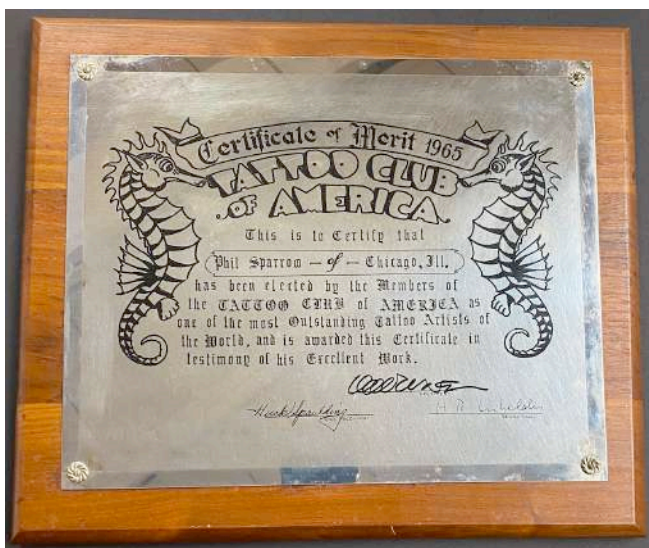 Certificate of Merit 1965
TATTOO CLUB
OF AMERICA
This is to Certify that
Phil Sparrow — of — Chicago, Ill.
has been elected by the Members of
the TATTOO CLUB of AMERICA as
one of the most Outstanding Tattoo Artists of
the World, and is awarded this Certificate in
testimony of his Excellent Work.
Huck Spaulding